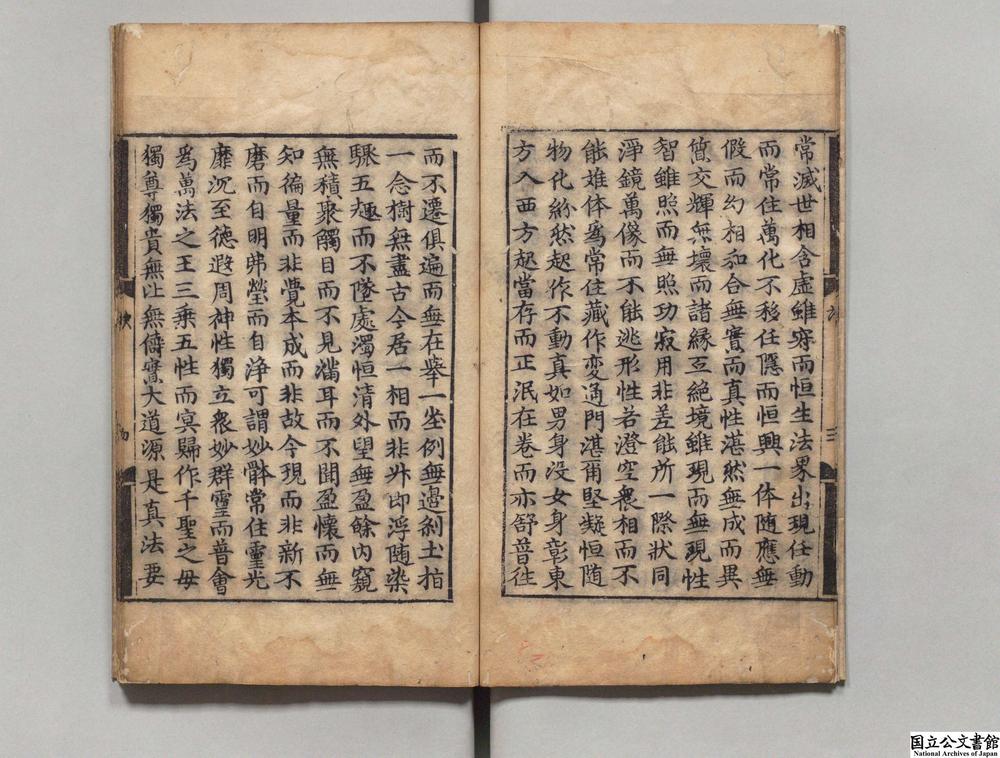 常滅世相含虛雖寂而恒生法界出現任動
而常住萬化不移任隱而恒興一体随應無
假而幻相和合無實而真性湛然無成而異
質交輝無壞而諸緣互絕境雖現而無現性
智雖照而無照功寂用非差能所一際狀同
淨鏡萬像而不能逃形性若澄空衆相而不
能媸体為常住藏作変通門湛爾堅凝恒随
物化紛然起作不動真如男身没女身彰東
方入西方起當存而正泯在卷而亦舒普徃
而不遷俱遍而無在舉一塵例無邊刹土指
一念樹無盡古今居一相而非外即浮随染
驟五趣而不墜處濁恒清外望無盈餘内窺
無積聚觸目而不見滿耳而不聞盈懷而無
知徧量而非覺本成而非故今現而非新不
磨而自明弗瑩而自浄可謂妙體常住靈光
靡沉至德遐周神性獨立衆妙群靈而普會
為萬法之王三乘五性而冥歸作千聖之母
獨尊獨貴無比無儔實大道源是真法要
国立公文書館
National Archives of Japan